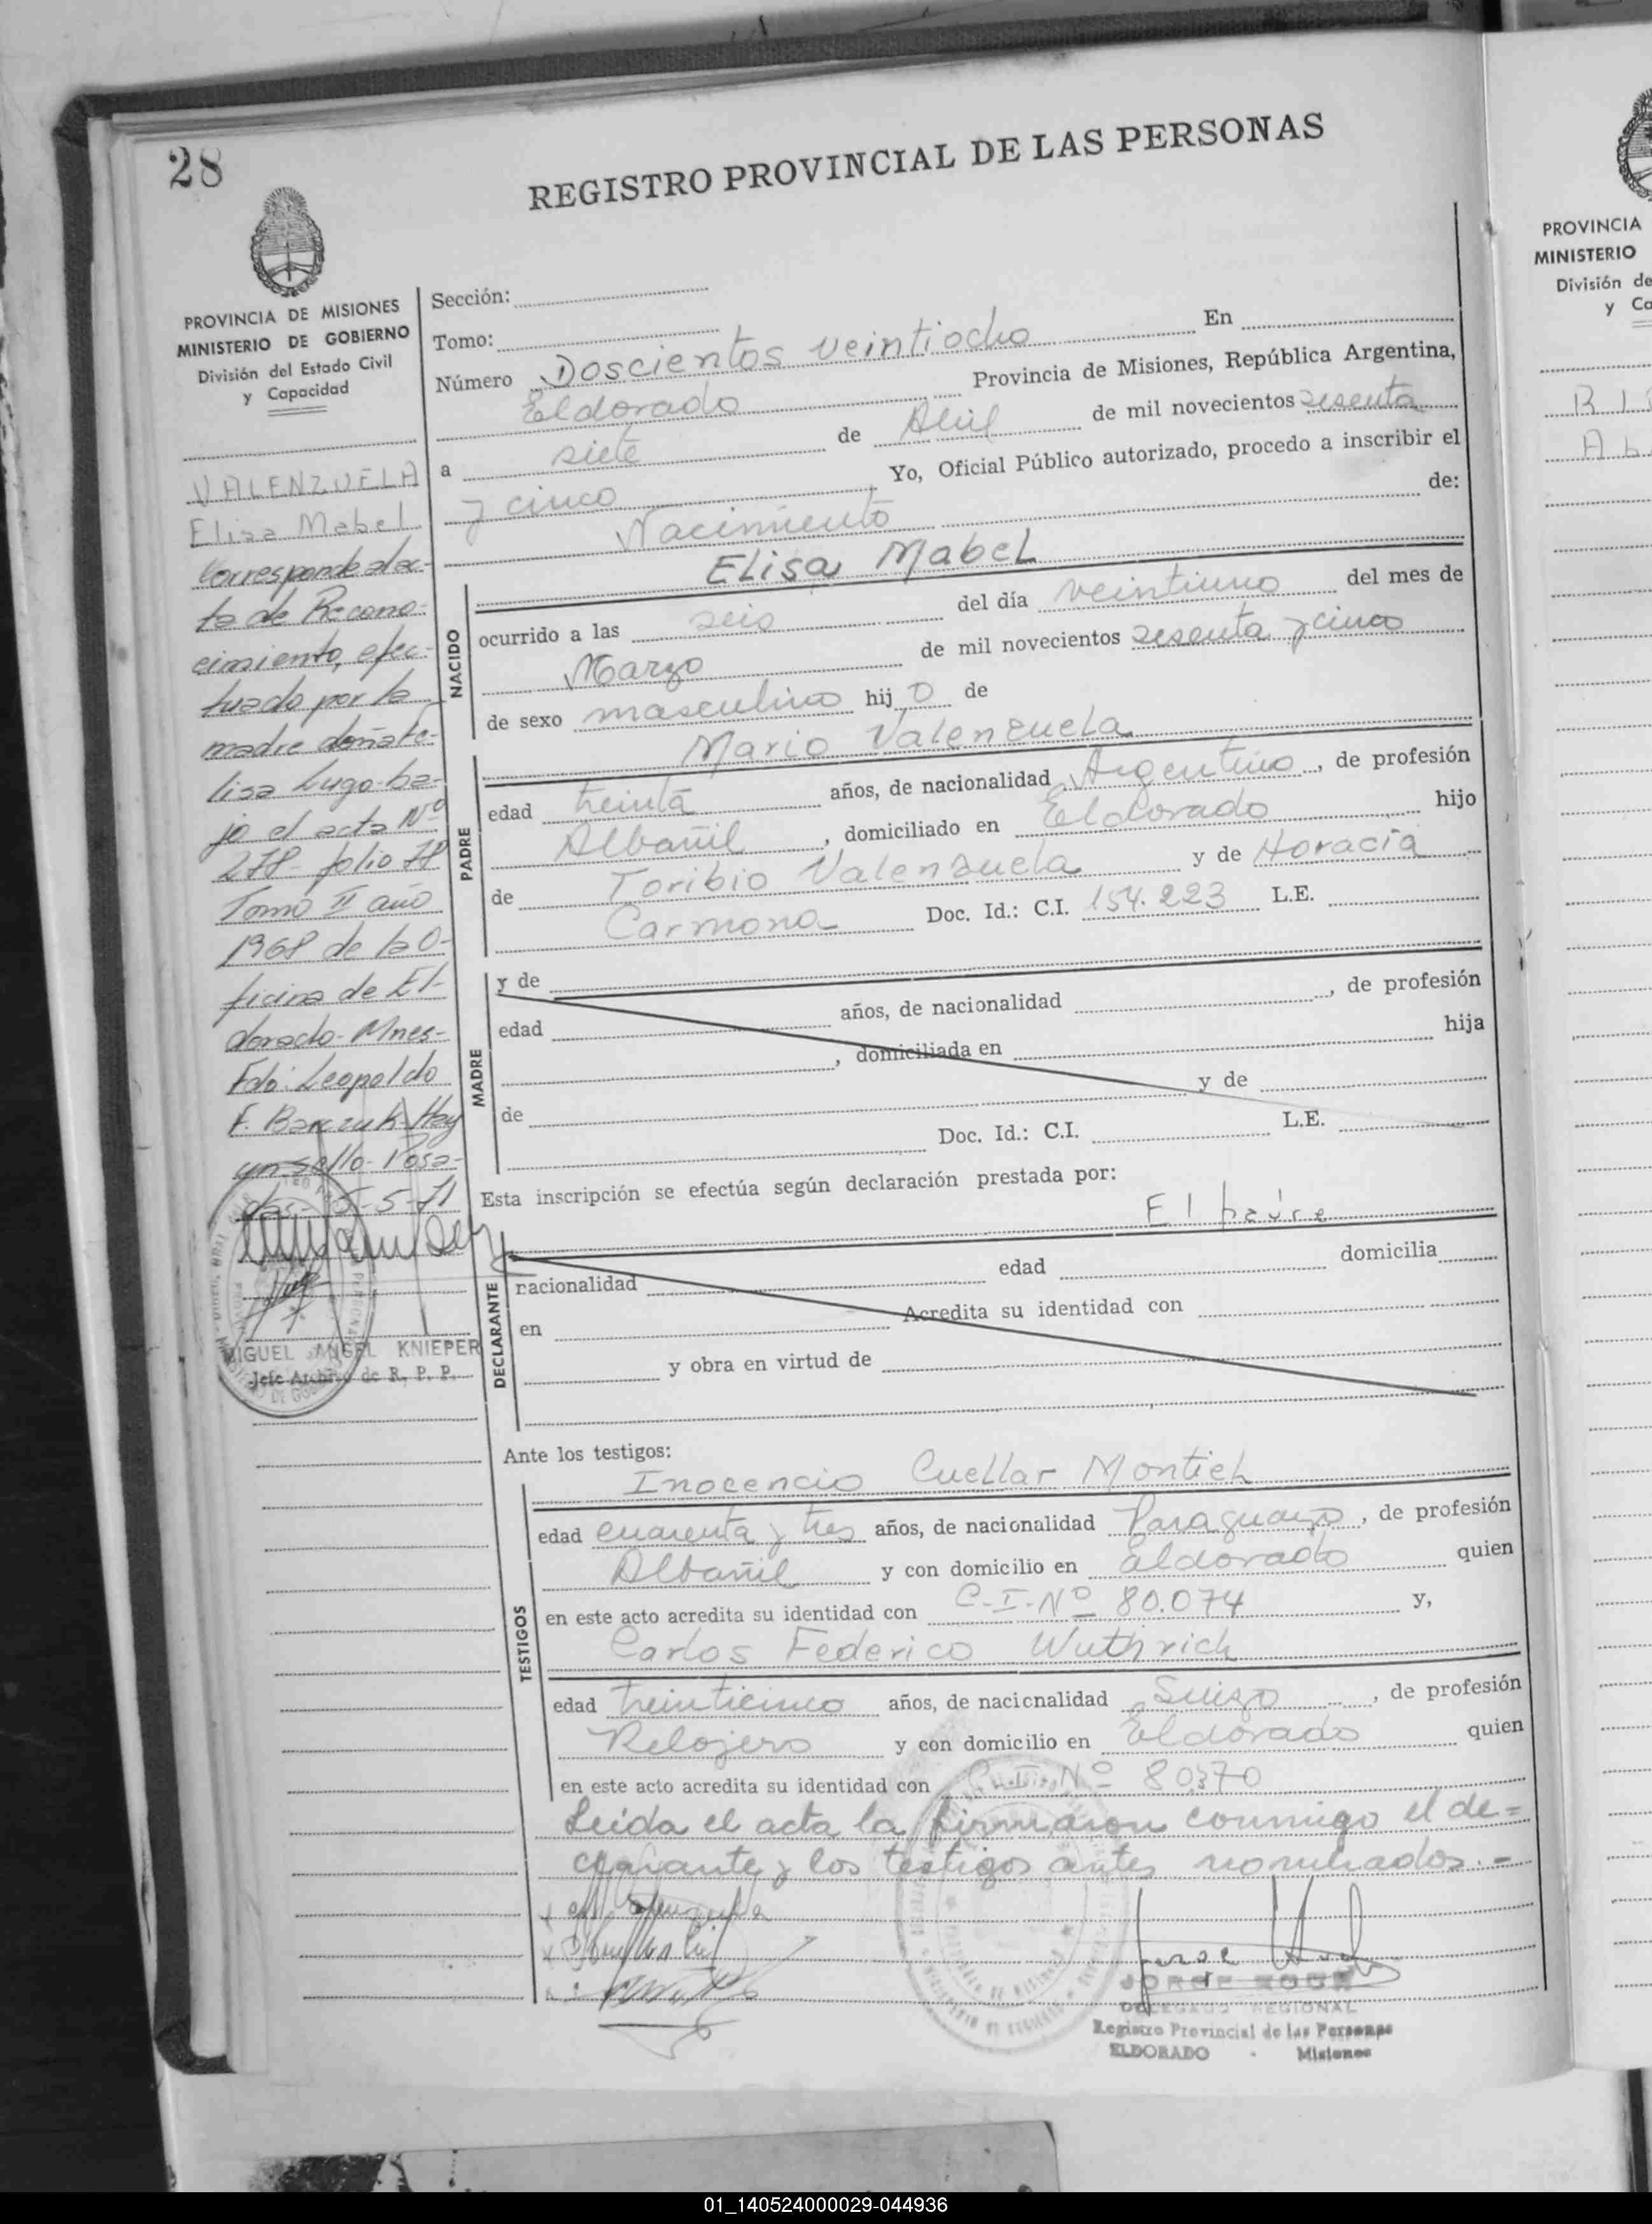 28
REGISTRO PROVINCIAL DE LAS PERSONAS
PROVINCIA DE MISIONES
MINISTERIO DE GOBIERNO
División del Estado Civil
y Capacidad
VALENZUELA
Elisa Mabel
Corresponde al ac-
ta de Recono-
cimiento, efec-
tuado por la
madre doña Fe-
lisa Lugo-ba-
jo el acta Nº
278- folio 78
Tomo II año
1968 de la O-
ficina de El-
dorado- Mnes-
Fdo: Leopoldo
F. Barczuk- Hay
un sello- Posa-
das- 5-5-71
MIGUEL ANGEL KNIEPER
Jefe Archivo de R. P. P.
Sección:
Tomo:
Número Doscientos veintiocho En
Eldorado Provincia de Misiones, República Argentina,
a siete de Abril de mil novecientos sesenta
y cinco Yo, Oficial Público autorizado, procedo a inscribir el
Nacimiento de:
NACIDO
Elisa Mabel
ocurrido a las seis del día veintiuno del mes de
Marzo de mil novecientos sesenta y cinco
de sexo masculino hij o de
PADRE
Mario Valenzuela
edad treinta años, de nacionalidad Argentino, de profesión
Albañil, domiciliado en Eldorado hijo
de Toribio Valenzuela y de Horacia
Carmona Doc. Id.: C.I. 154.223 L.E.
MADRE
y de
edad años, de nacionalidad , de profesión
, domiciliada en hija
de y de
Doc. Id.: C.I. L.E.
Esta inscripción se efectúa según declaración prestada por:
El padre
DECLARANTE
nacionalidad edad domicilia
en Acredita su identidad con
y obra en virtud de
Ante los testigos:
TESTIGOS
Inocencio Cuellar Montiel
edad cuarenta y tres años, de nacionalidad Paraguayo, de profesión
Albañil y con domicilio en Eldorado quien
en este acto acredita su identidad con C.I. Nº 80.074 y,
Carlos Federico Wuthrich
edad treinticinco años, de nacionalidad Suizo, de profesión
Relojero y con domicilio en Eldorado quien
en este acto acredita su identidad con C.I. Nº 80370
Leida el acta la firmaron conmigo el de=
clarante y los testigos antes nombrados.-
JORGE
DELEGADO REGIONAL
Registro Provincial de las Personas
ELDORADO - Misiones
PROVINCIA
MINISTERIO
División de
y Ca
01_140524000029-044936